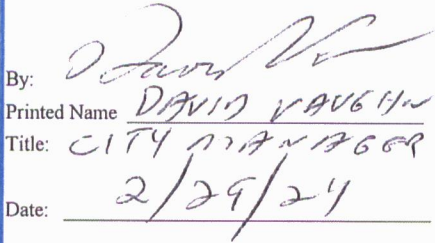 By:
Printed Name DAVID VAUGHN
Title: CITY MANAGER
Date: 2/29/24